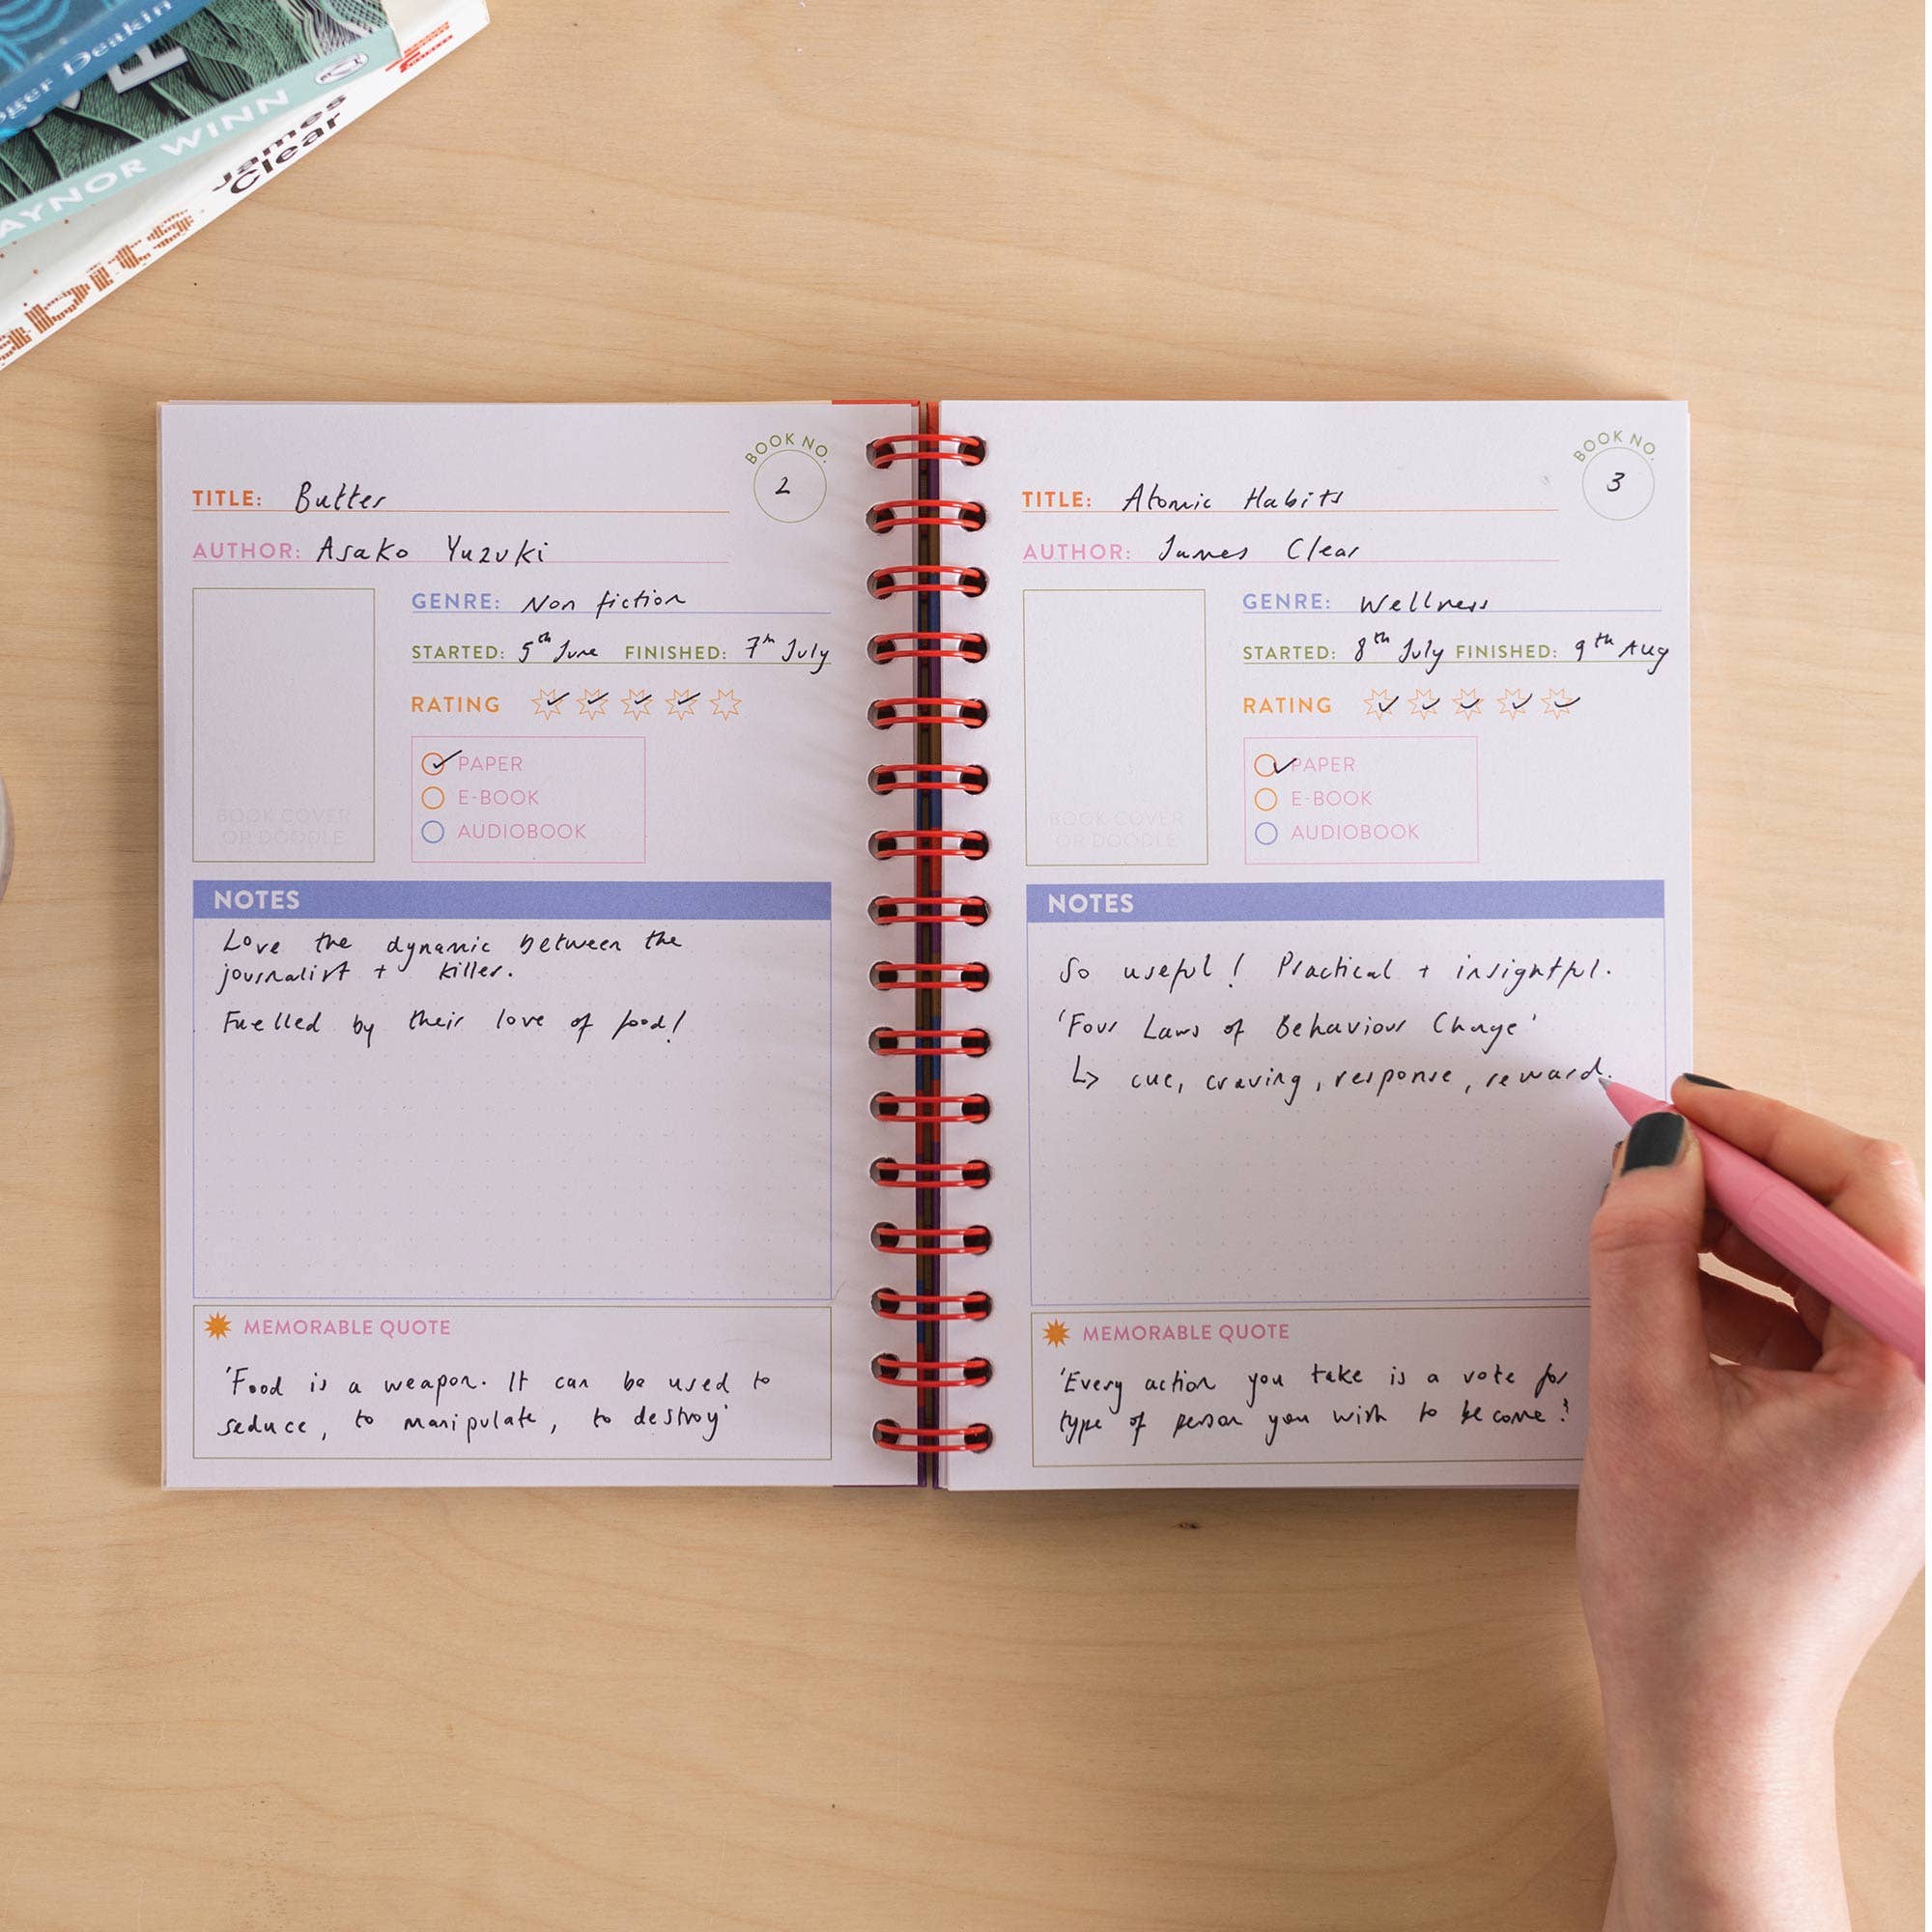 ger Deakin
AYNOR WINN
James
Clear
abits
BOOK NO.
2
TITLE: Butter
AUTHOR: Asako Yuzuki
GENRE: Non fiction
STARTED: 5th June FINISHED: 7th July
RATING
PAPER
E-BOOK
AUDIOBOOK
BOOK COVER
OR DOODLE
NOTES
Love the dynamic between the
journalist + killer.
Fuelled by their love of food!
MEMORABLE QUOTE
'Food is a weapon. It can be used to
seduce, to manipulate, to destroy'
BOOK NO.
3
TITLE: Atomic Habits
AUTHOR: James Clear
GENRE: Wellness
STARTED: 8th July FINISHED: 9th Aug
RATING
PAPER
E-BOOK
AUDIOBOOK
BOOK COVER
OR DOODLE
NOTES
So useful! Practical + insightful.
'Four Laws of Behaviour Change'
↳ cue, craving, response, reward.
MEMORABLE QUOTE
'Every action you take is a vote for
type of person you wish to become.'